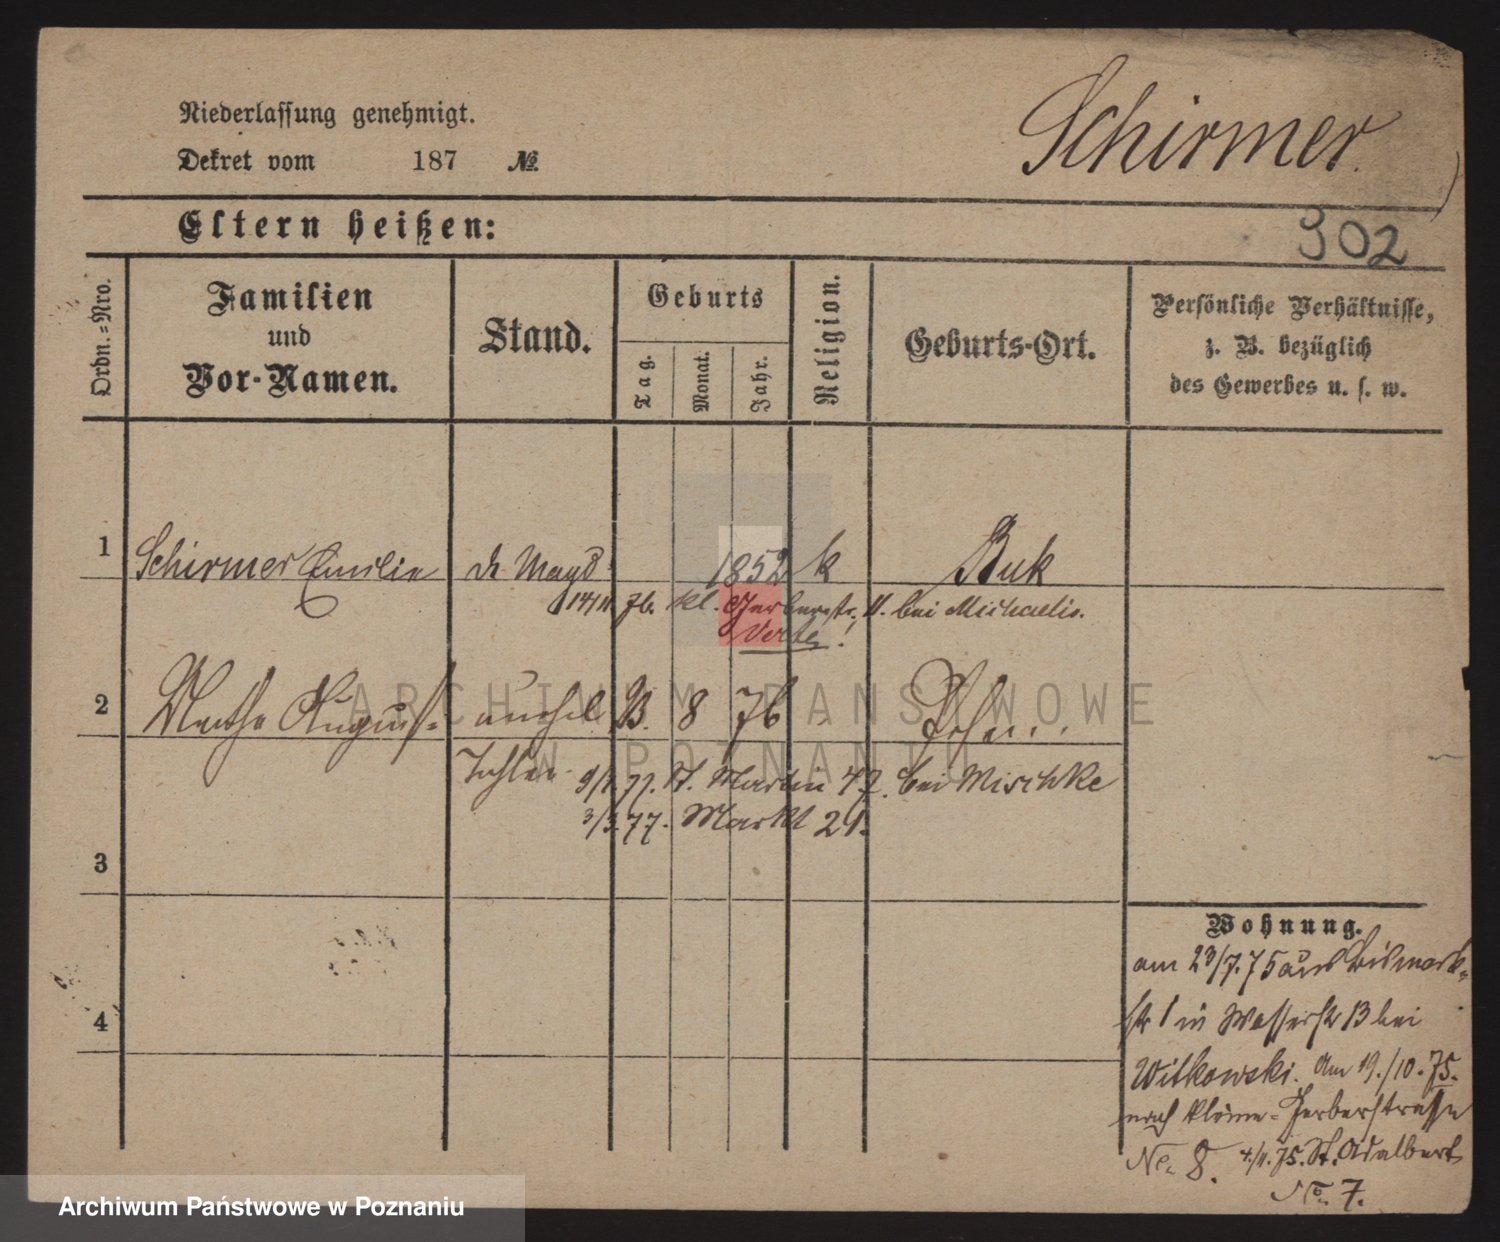 Niederlassung genehmigt.
Dekret vom 187 №
Schirmer.
302
Eltern heißen:
Ordn.=Nro.
Familien
und
Vor-Namen.
Stand.
Geburts
Tag.
Monat.
Jahr.
Religion.
Geburts-Ort.
Persönliche Verhältnisse,
z. B. bezüglich
des Gewerbes u. s. w.
1 Schirmer Emilie d. Magd 1852 k Buk
14/11 76. kl. Gerberstr. 11. bei Michaelis.
Verte!
2 August unehel. 8 76
Tochter
9/1. 77. St. Martin 47. bei Mischke
3/3. 77. Markt 21.
3
4
Wohnung.
am 23/7. 75 aus Bismark-
str 1 in Wasserstr 13 bei
Witkowski. Am 19./10. 75.
nach kleine- Gerberstrasse
No. 8. 4/11. 75. St. Adalbert
No. 7.
ARCHIWUM PAŃSTWOWE
W POZNANIU
Archiwum Państwowe w Poznaniu